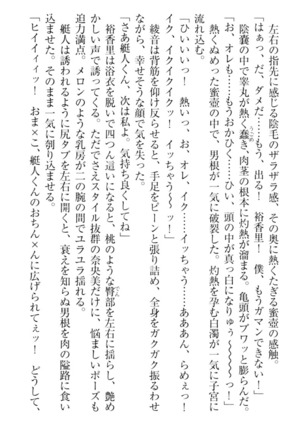 左右の指先に感じる陰毛のザラザラ感、その奥に熱くたぎる蜜壺の感触。
「はぁっ、だ、ダメだ……もう、出る！　裕香里！　僕、もうガマンできない！」
陰嚢の中で睾丸が熱く蠢き、肉茎の根本に灼熱が溜まる。亀頭がブワッと膨らんだ。
「お、オレも……もうおかひく……ひい、頭の中が真っ白になりゅぅ〜〜〜っ！」
熱くぬめった蜜壺の中で、男根が一気に破裂した。灼熱を孕む白濁が一気に子宮に
流れ込む。
「ひいいいっ！　熱いっ、お、オレ、イク……イッちゃう……あああん、らめぇっ！
イク、イクイクイクッ！　イッちゃうぅ〜ッ！」
綾音は背筋を仰け反らせると、手足をピーンと張り詰め、全身をガクガク振るわせ
ながら、幸せそうな顔で気を失った。
「さあ艇人くん、次は私よ。気持ち良くしてね」
裕香里は浴衣を脱いで四つん這いになると、桃のような臀部を左右に揺らし、艶め
かしい声で誘ってくる。ただでさえスタイル抜群の奈央美だけに、悩ましいポーズも
迫力満点。メロンのような乳房が二の腕の間でユラユラ揺れる。
艇人は誘われるように尻タブを左右に開くと、衰えを知らぬ男根を肉の隘路に突き
込ませた。そのまま一気に刳り込ませる。
「ヒイイィィッ！　おま×こ、艇人くんのおちん×んに広げられてぇッ！　どうして、